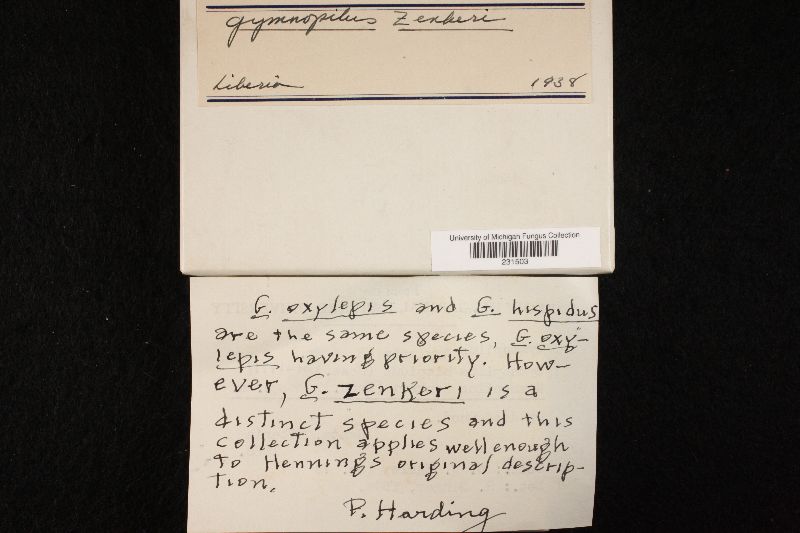 gymnopilus Zenkeri
Liberia 1938
University of Michigan Fungus Collection
231503
G. oxylepis and G. hispidus
are the same species, G. oxy-
lepis having priority. How-
ever, G. zenkeri is a
distinct species and this
collection applies well enough
to Hennings original descrip-
tion.
P. Harding